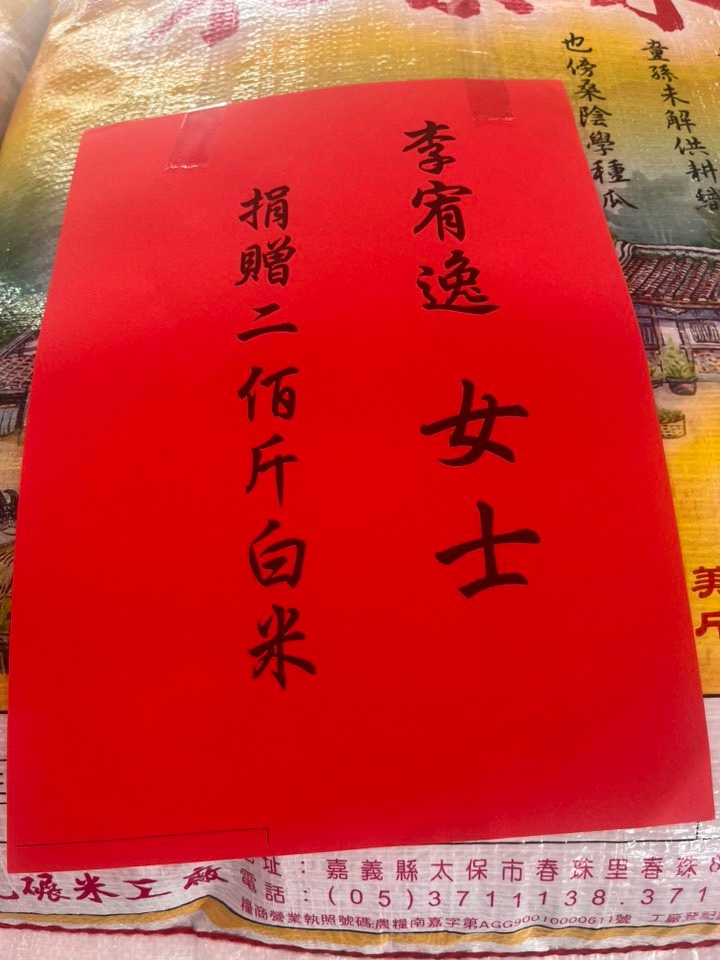 童孫未解供耕織
也傍桑陰學種瓜
李宥逸 女士
捐贈二佰斤白米
美
斤
碾米工廠
址：嘉義縣太保市春珠里春珠8
電話：(05)3711138.371
糧商營業執照號碼:農糧南嘉字第AGG90010000611號 工廠登記